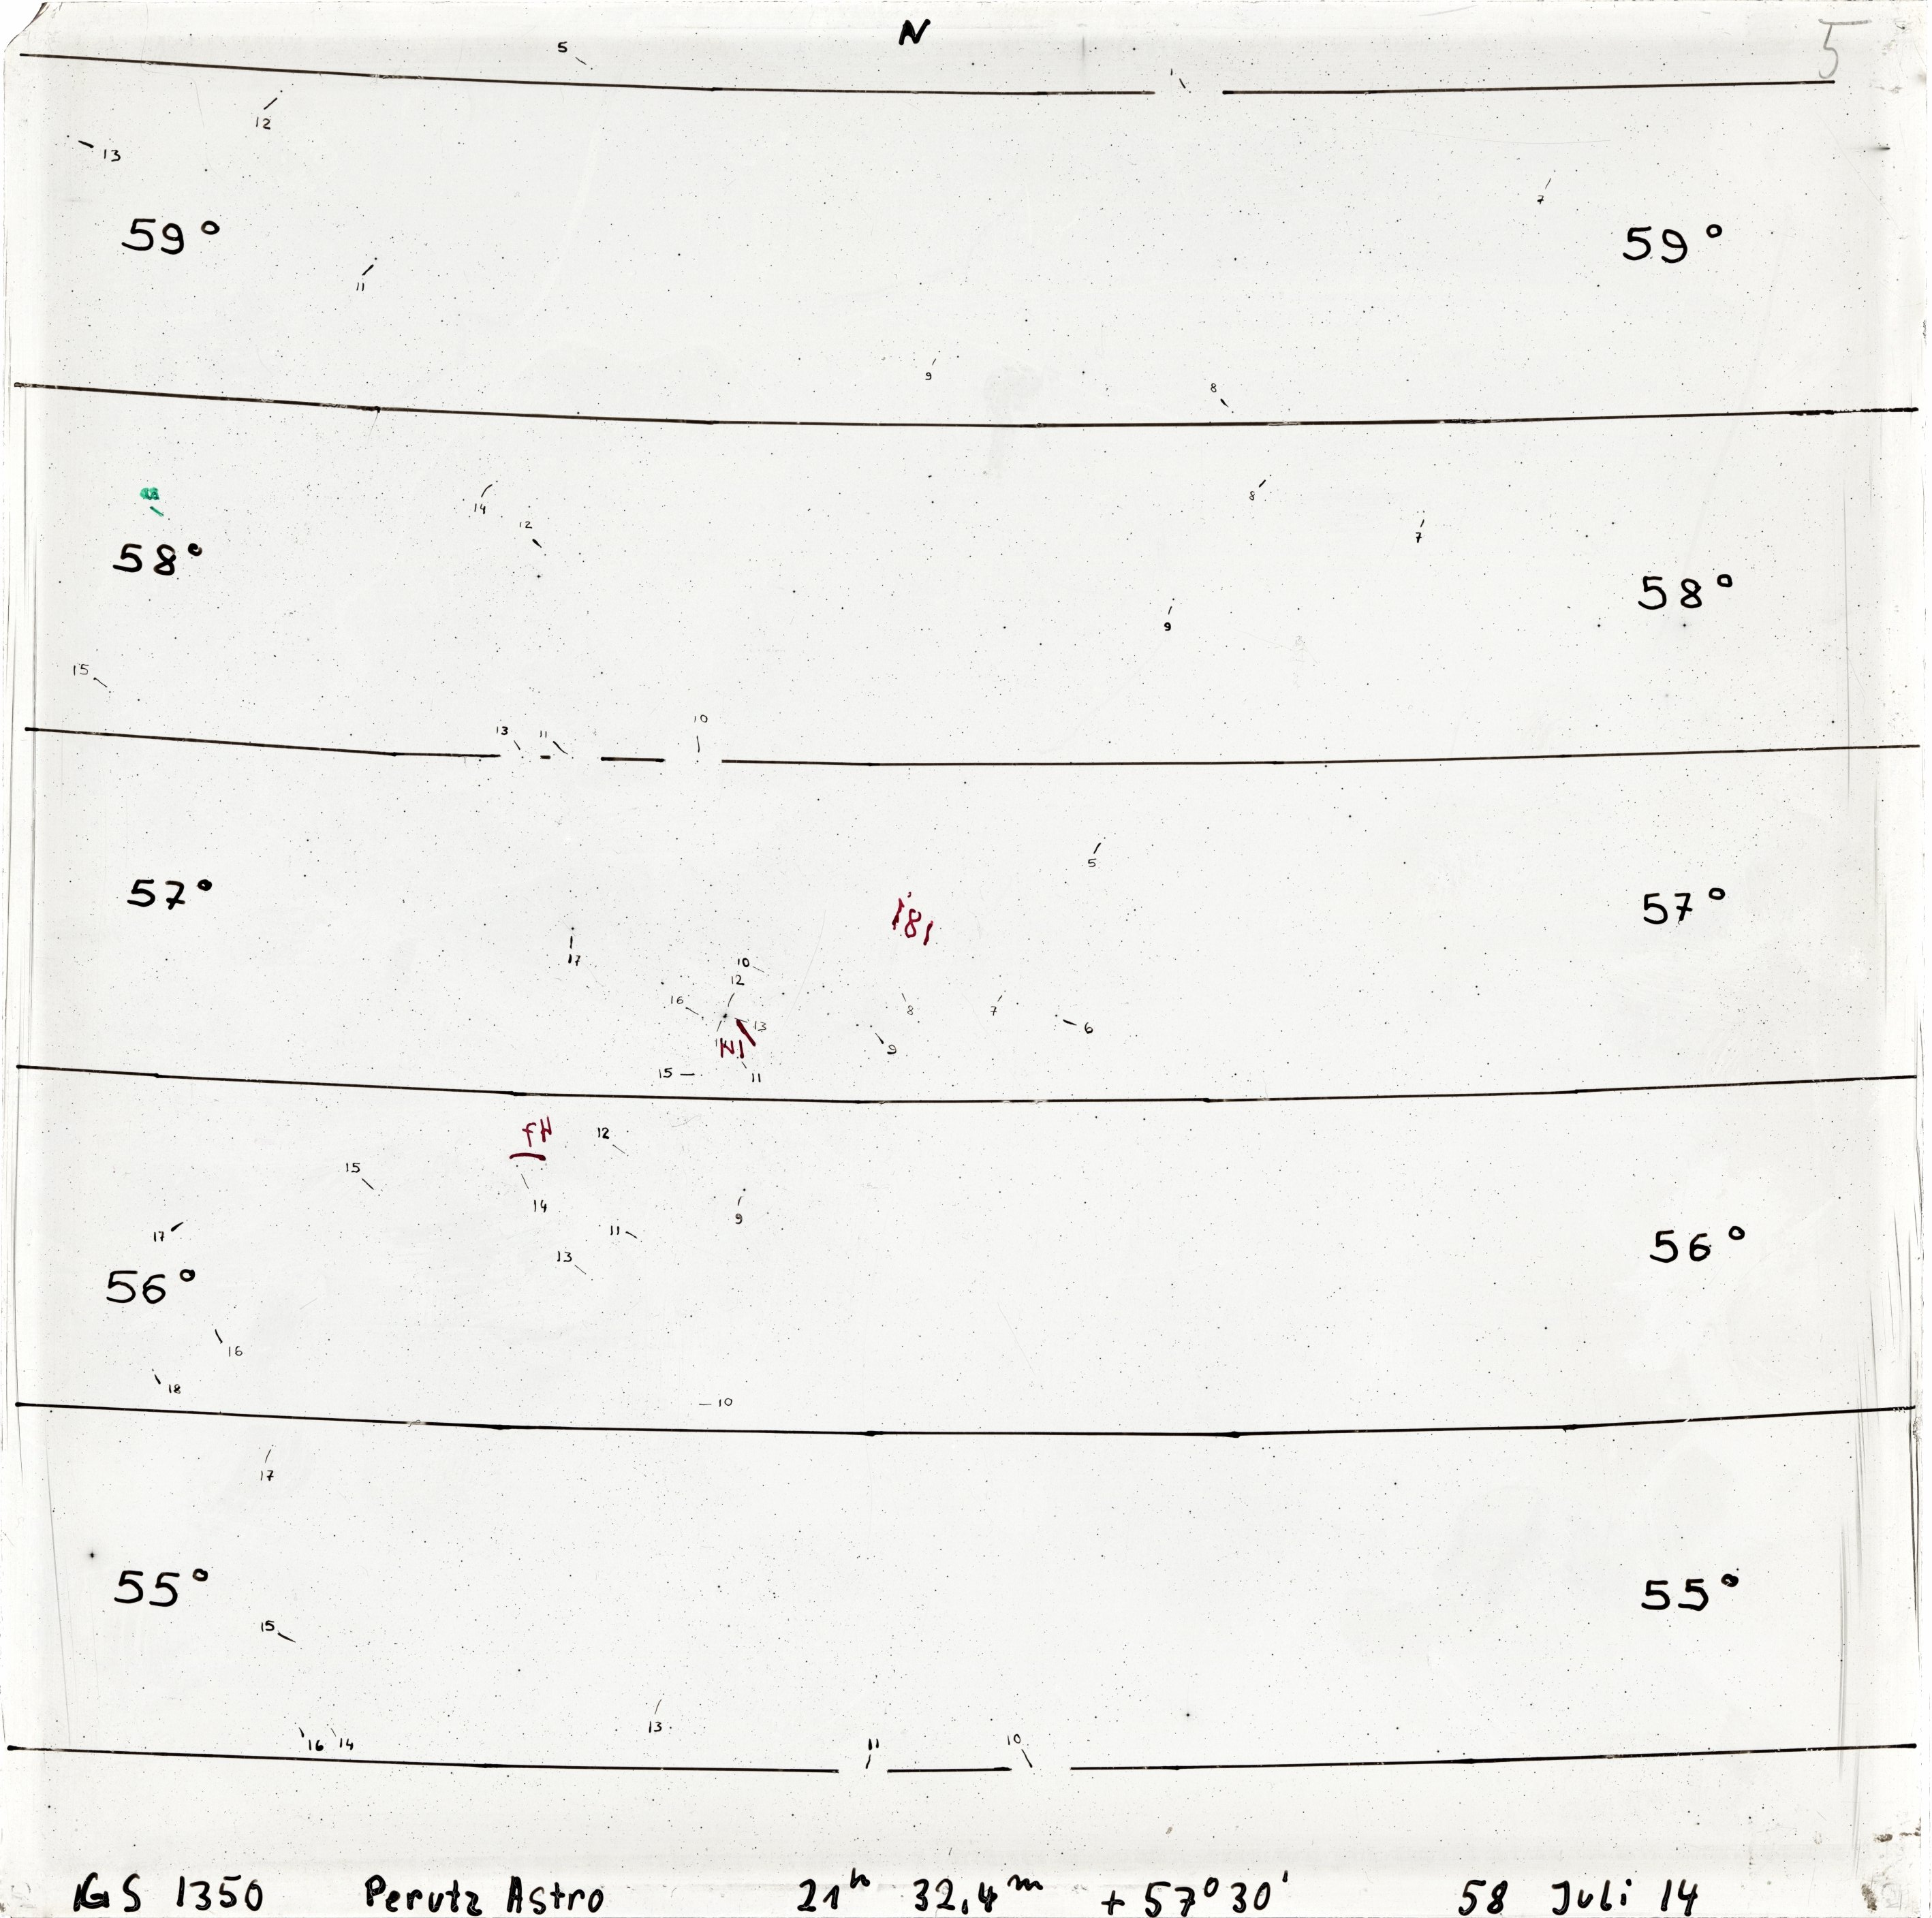 N
5
5
1
12
13
7
59° 59°
11
9
8
14
8
12
7
58° 58°
9
15
13 11 10
5
57° 57°
181
17
10
12
16
8 7
13 6
9
15 11
fH
12
15
14
9
17
11
13
56° 56°
16
18
10
17
55° 55°
15
13
16 14
11 10
KGS 1350 Perutz Astro 21h 32,4m +57°30' 58 Juli 14